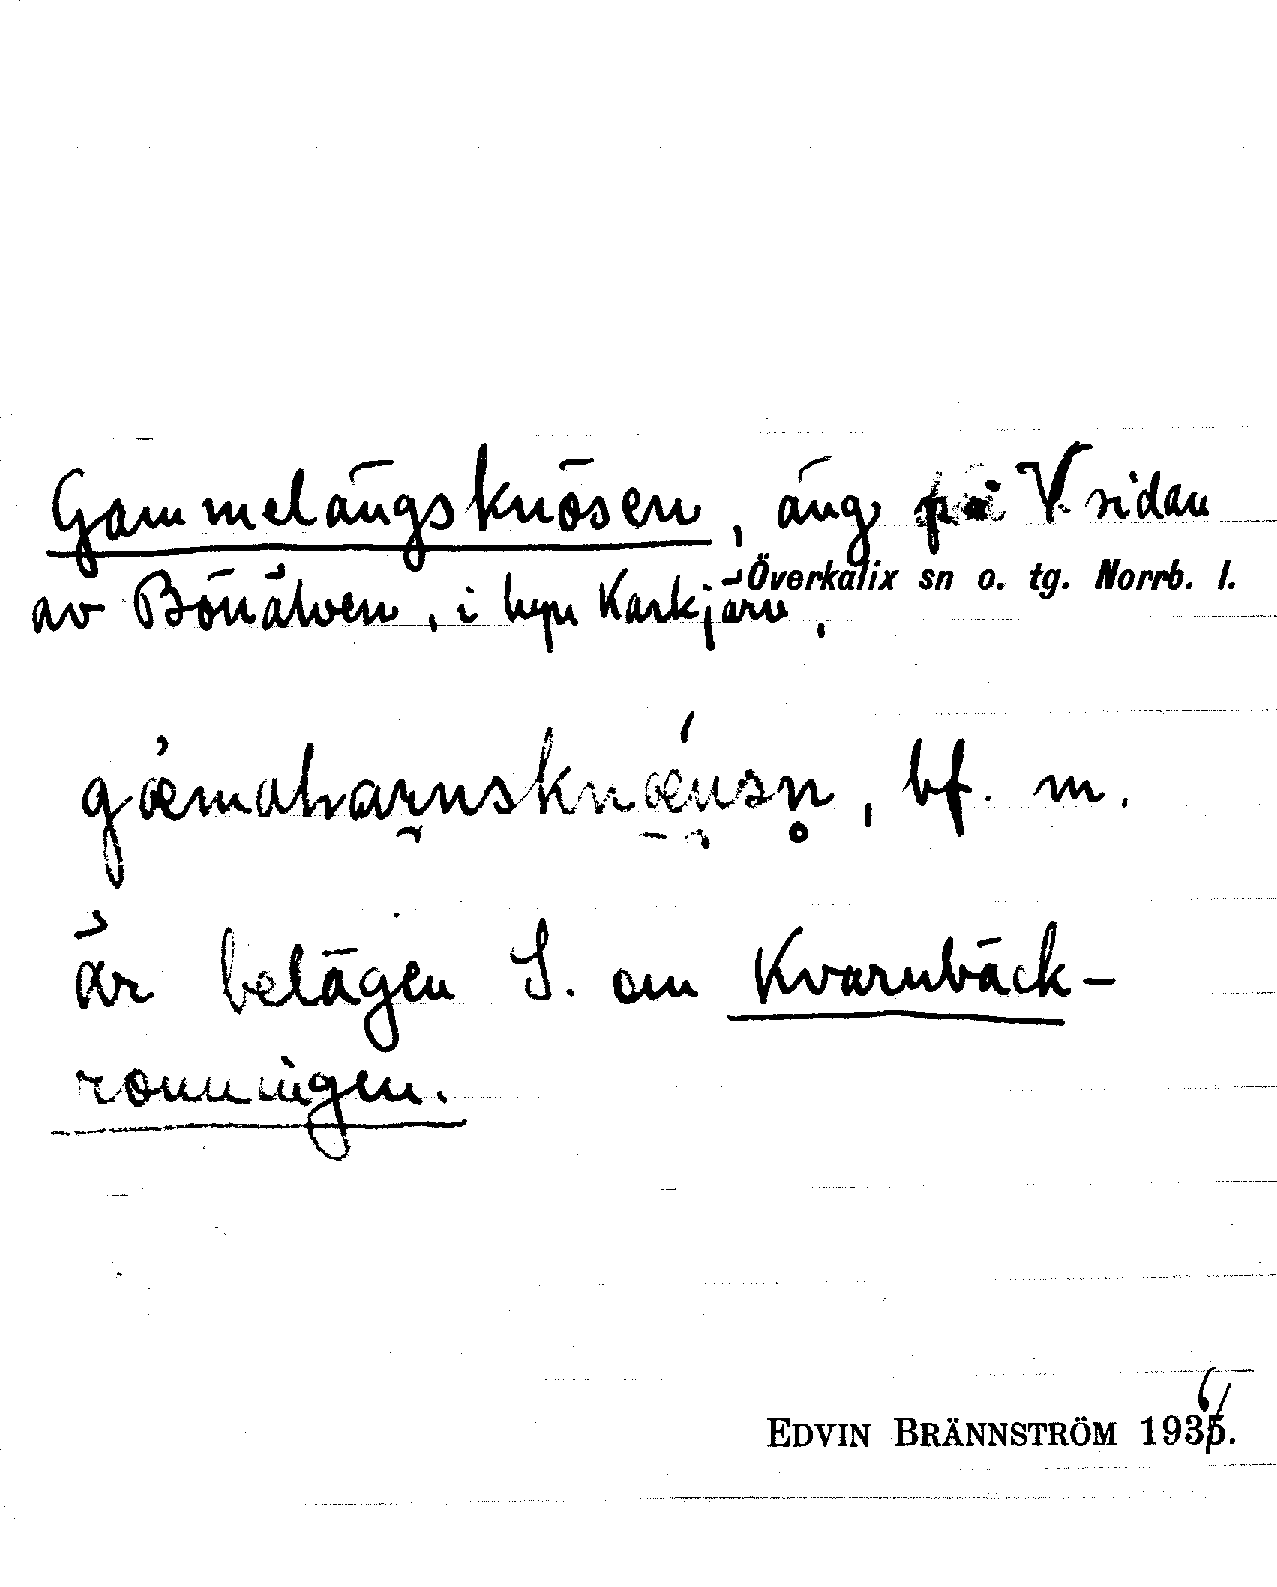 Gammelängsknösen, äng på V. sidan
Överkalix sn o. tg. Norrb. l.
av Bönälven, i byn Karkjärv,
bf. m.
är belägen S. om Kvarnbäck-
rönningen.
EDVIN BRÄNNSTRÖM 1936.